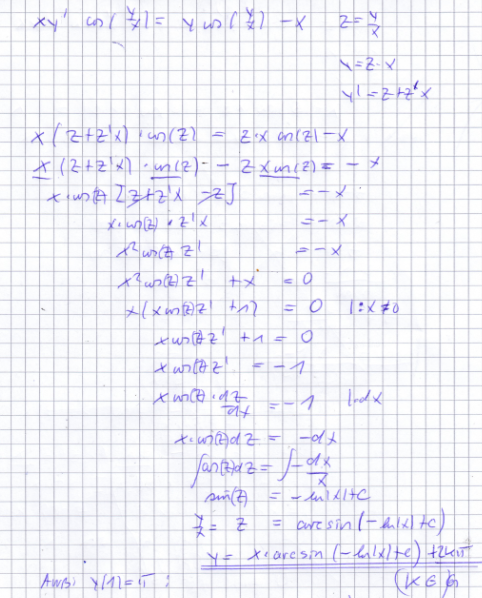 xy' cos(y/x) = y cos(y/x) - x    z = y/x
y = z·x
y' = z+z'x
x(z+z'x)·cos(z) = z·x cos(z) - x
x(z+z'x)·cos(z) - z x cos(z) = -x
x·cos(z) [z+z'x - z] = -x
x·cos(z)·z'x = -x
x² cos(z) z' = -x
x² cos(z) z' + x = 0
x(x cos(z) z' + 1) = 0 |:x≠0
x cos(z) z' + 1 = 0
x cos(z) z' = -1
x cos(z)·dz/dx = -1 |·dx
x·cos(z)dz = -dx
∫cos(z)dz = ∫-dx/x
sin(z) = -ln|x|+C
y/x = z = arcsin(-ln|x|+c)
y = x·arcsin(-ln|x|+c) +2kπ
AWB: y(1)=π : (k∈